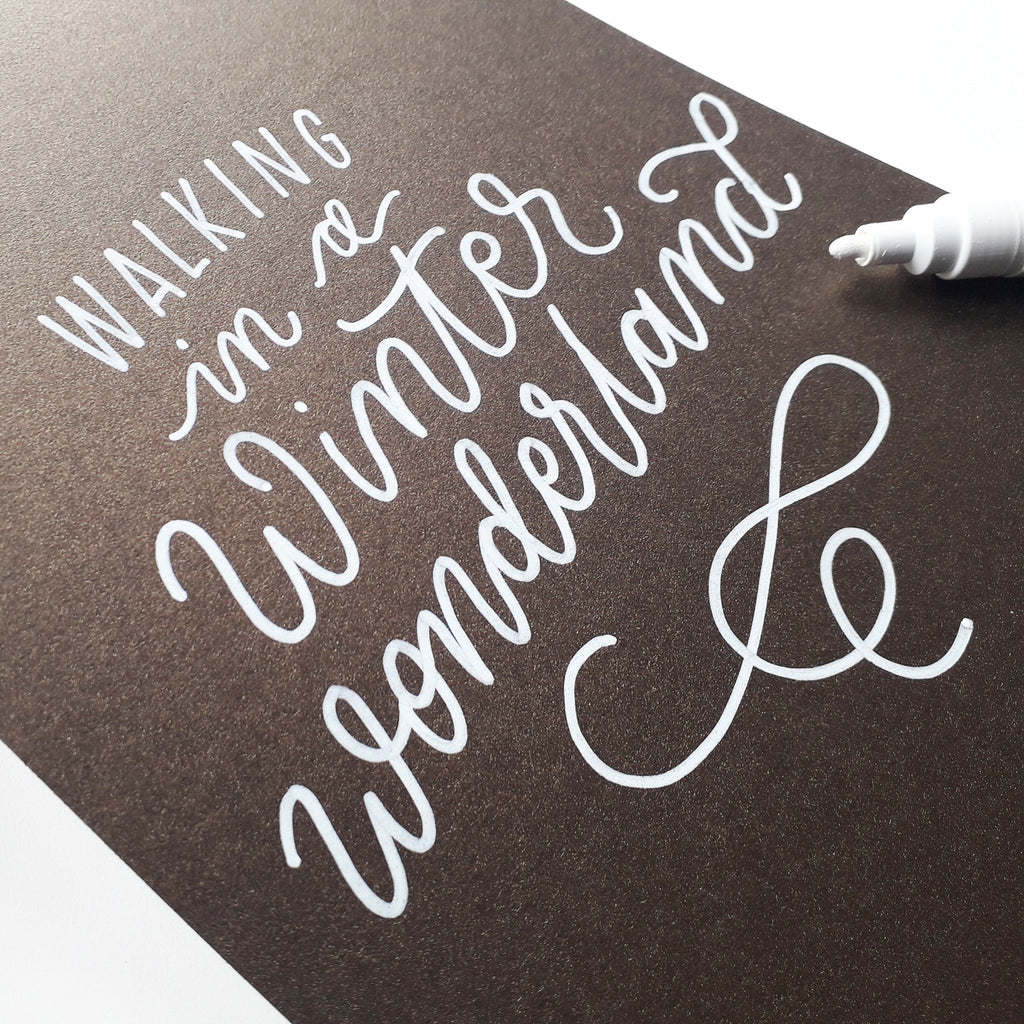 WALKING
in a
Winter
wonderland